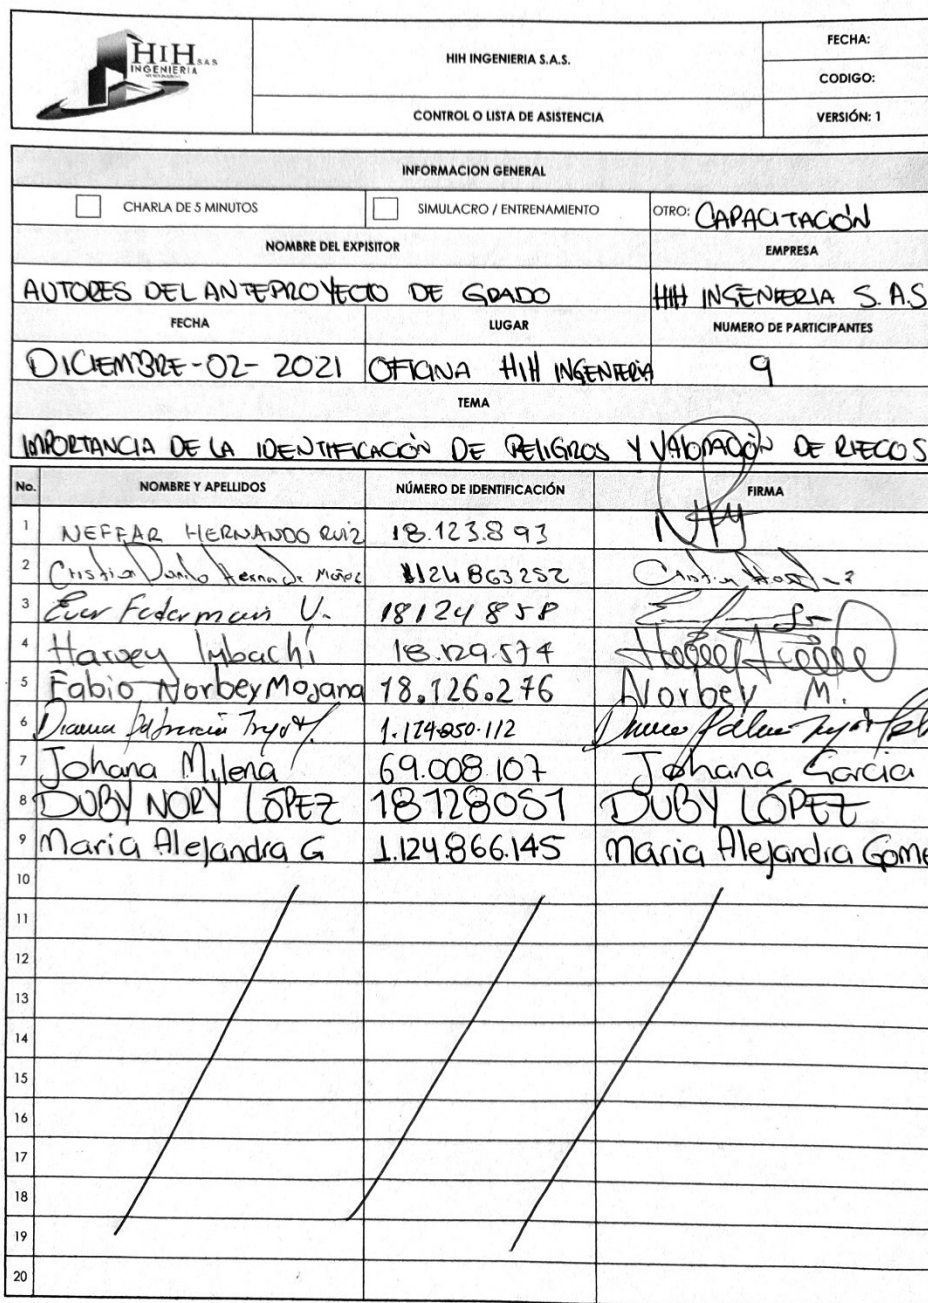 HIH S.A.S
INGENIERIA
HIH INGENIERIA S.A.S.
FECHA:
CODIGO:
CONTROL O LISTA DE ASISTENCIA
VERSIÓN: 1
INFORMACION GENERAL
CHARLA DE 5 MINUTOS
SIMULACRO / ENTRENAMIENTO
OTRO: CAPACITACIÓN
NOMBRE DEL EXPISITOR
EMPRESA
AUTORES DEL ANTEPROYECTO DE GRADO
HIH INGENIERIA S.A.S
FECHA
LUGAR
NUMERO DE PARTICIPANTES
DICIEMBRE-02-2021
OFICINA HIH INGENIERIA
9
TEMA
IMPORTANCIA DE LA IDENTIFICACIÓN DE PELIGROS Y VALORACIÓN DE RIECOS
No.
NOMBRE Y APELLIDOS
NÚMERO DE IDENTIFICACIÓN
FIRMA
1 NEFFAR HERNANDO RUIZ 18.123.893
2 Cristian Danilo 1124863252 Cristian
3 Ever Federman V. 18124858
4 Harvey Imbachi 18.129.574
5 Fabio Norbey Mojana 18.126.276 Norbey M.
6 Diana Patricia 1.124.850.112
7 Johana Milena 69.008.107 Johana Garcia
8 DUBY NORY LÓPEZ 18128051 DUBY LÓPEZ
9 Maria Alejandra G 1.124.866.145 Maria Alejandra Gome
10
11
12
13
14
15
16
17
18
19
20